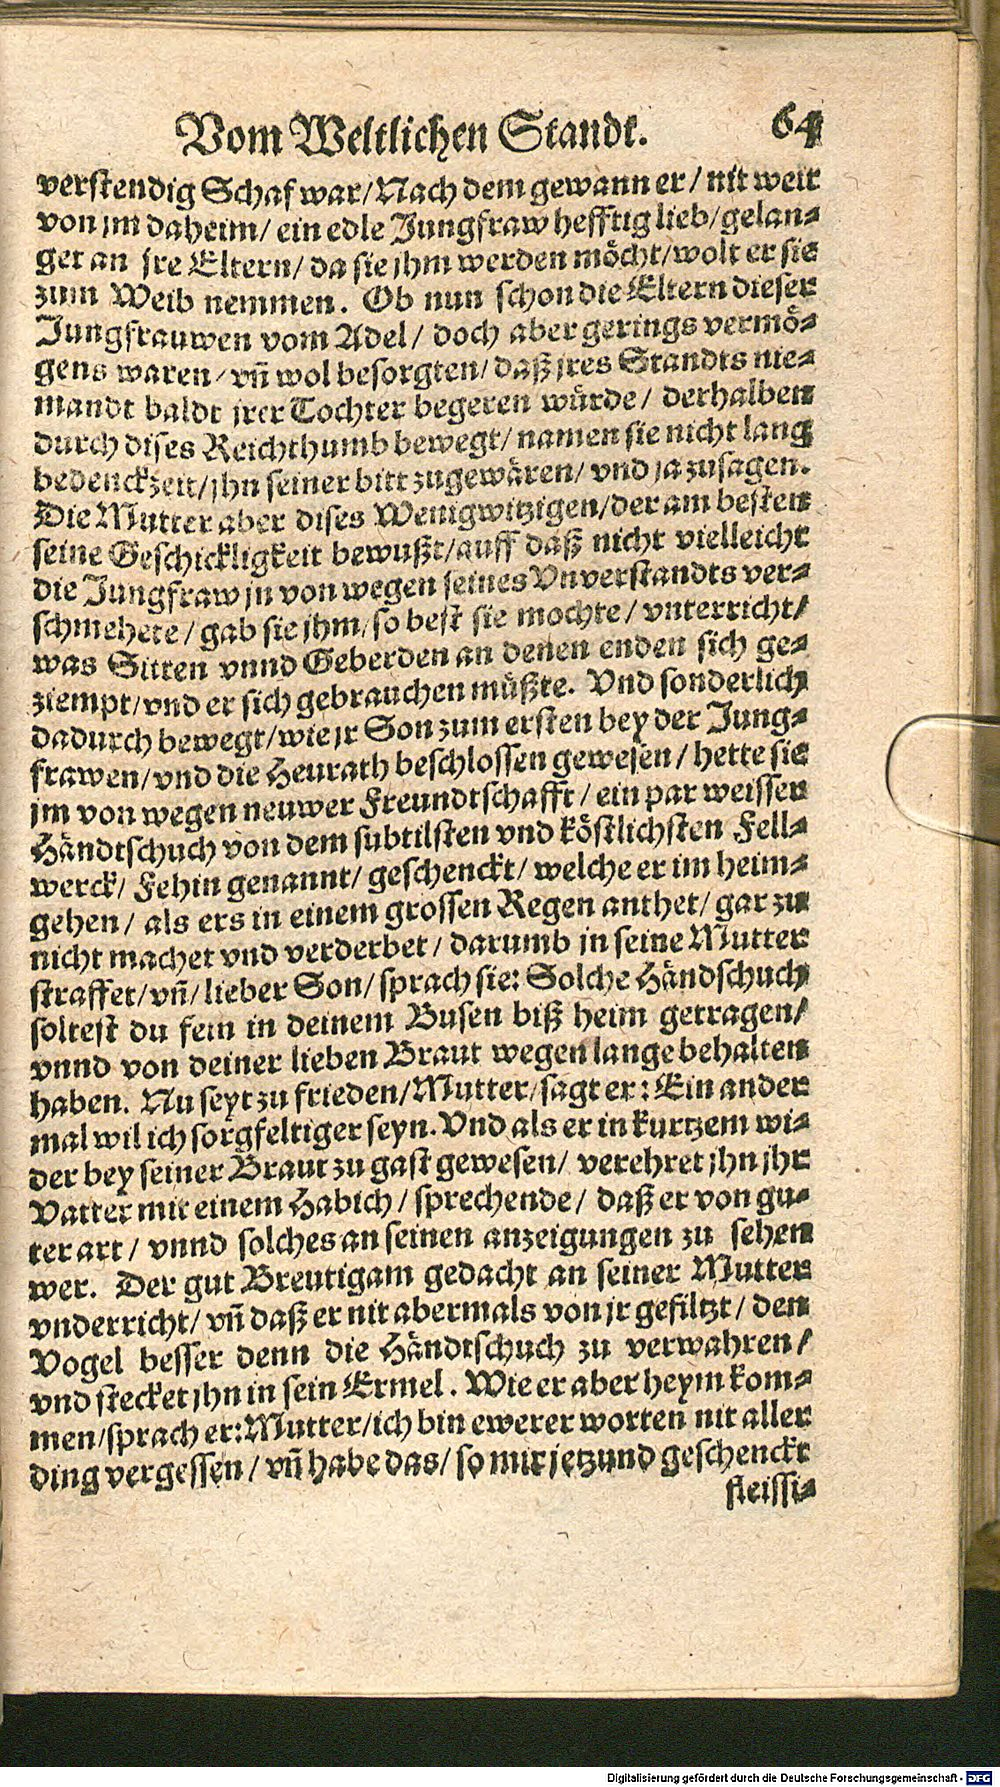 Vom Weltlichen Standt. 64
verstendig Schaf war/Nach dem gewann er/nit weit
von jm daheim/ ein edle Jungfraw hefftig lieb/gelan-
get an jre Eltern/ da sie jhm werden möcht/wolt er sie
zum Weib nemmen. Ob nun schon die Eltern dieser
Jungfrauwen vom Adel/ doch aber gerings vermö-
gens waren/ vñ wol besorgten/ daß jres Standts nie-
mandt baldt jrer Tochter begeren würde/ derhalben
durch dises Reichthumb bewegt/ namen sie nicht lang
bedenckzeit/jhn seiner bitt zugewären/ vnd ja zusagen.
Die Mutter aber dises Wenigwitzigen/der am besten
seine Geschickligkeit bewußt/auff daß nicht vielleicht
die Jungfraw jn von wegen seines Vnverstandts ver-
schmehete/ gab sie jhm/so best sie mochte/ vnterricht/
was Sitten vnnd Geberden an denen enden sich ge-
ziempt/vnd er sich gebrauchen müßte. Vnd sonderlich
dadurch bewegt/wie jr Son zum ersten bey der Jung-
frawen/vnd die Heurath beschlossen gewesen/ hette sie
jm von wegen neuwer Freundtschafft/ ein par weissen
Händtschuch von dem subtilsten vnd köstlichsten Fell-
werck/ Fehin genannt/ geschenckt/ welche er im heim-
gehen/ als ers in einem grossen Regen anthet/ gar zu
nicht machet vnd verderbet/ darumb jn seine Mutter
straffet/vñ/ lieber Son/ sprach sie: Solche Händschuch
soltest du fein in deinem Busen biß heim getragen/
vnnd von deiner lieben Braut wegen lange behalten
haben. Nu seyt zu frieden/Mutter/sagt er: Ein ander
mal wil ich sorgfeltiger seyn. Vnd als er in kurtzem wi-
der bey seiner Braut zu gast gewesen/ verehret jhn jhr
Vatter mit einem Habich/ sprechende/ daß er von gu-
ter art/ vnnd solches an seinen anzeigungen zu sehen
wer. Der gut Breutigam gedacht an seiner Mutter
vnderricht/ vñ daß er nit abermals von jr gefiltzt/ den
Vogel besser denn die Händtschuch zu verwahren/
vnd stecket jhn in sein Ermel. Wie er aber heym kom-
men/sprach er: Mutter/ich bin ewerer worten nit aller
ding vergessen/ vñ habe das/ so mir jetzund geschenckt
fleissi-
Digitalisierung gefördert durch die Deutsche Forschungsgemeinschaft - DFG